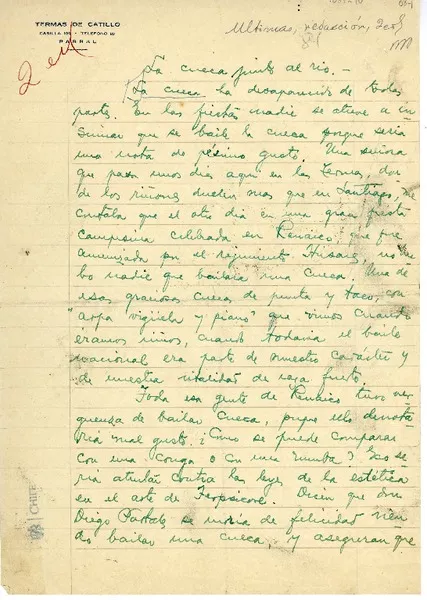 TERMAS DE CATILLO
CASILLA 105 - TELEFONO 10
PARRAL
Ultimas, redacción, 2 col
2 col
La cueca junto al río.-
La cueca ha desaparecido de todas
partes. En las fiestas nadie se atreve a in
sinuar que se baile la cueca porque sería
una nota de pésimo gusto. Una señora
que pasa unos días aquí en las Termas, don
de los riñones duelen mas que en Santiago, me
contaba que el otro día en una gran fiesta
campesina celebrada en Renaico, que fue
amenizada por el regimiento Húsares, no hu
bo nadie que bailara una cueca. Una de
esas graciosas cuecas de punta y taco, con
"arpa vigüela y piano" que vimos cuando
éramos niños, cuando todavía el baile
nacional era parte de nuestro carácter y
de nuestra vitalidad de raza fuerte.
Toda esa gente de Renaico tuvo ver
guenza de bailar cueca, porque ello denota
ría mal gusto. ¿Cómo se puede comparar
con una conga o con una rumba? Eso se
ría atentar contra las leyes de la estética
en el arte de Terpsícore. Dicen que don
Diego Portales se moría de felicidad vien
do bailar una cueca, y aseguran que
CHILE